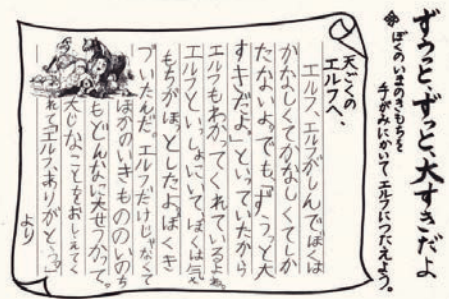 ずうっと、ずっと、大すきだよ
ぼくのいまのきもちを
手がみにかいてエルフにつたえよう。
天ごくの
エルフへ、
エルフ、エルフがしんでぼくは
かなしくてかなしくてしか
たないよ。でも、「ずうっと大
すきだよ。」といっていたから
エルフもわかってくれているよね。
エルフといっしょにいて、ぼくは気
もちがほっとしたよ。ぼくき
づいたんだ。エルフだけじゃなくて
ほかのいきもののいのち
もどんなに大せつかって。
大じなことをおしえてく
れて「エルフ、ありがとう。」
より